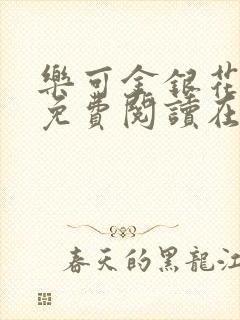 樂可金銀花
免費閱讀在
春天的黑龍江